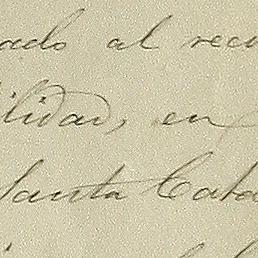 ado al recu
ilidad, en
Santa Cata